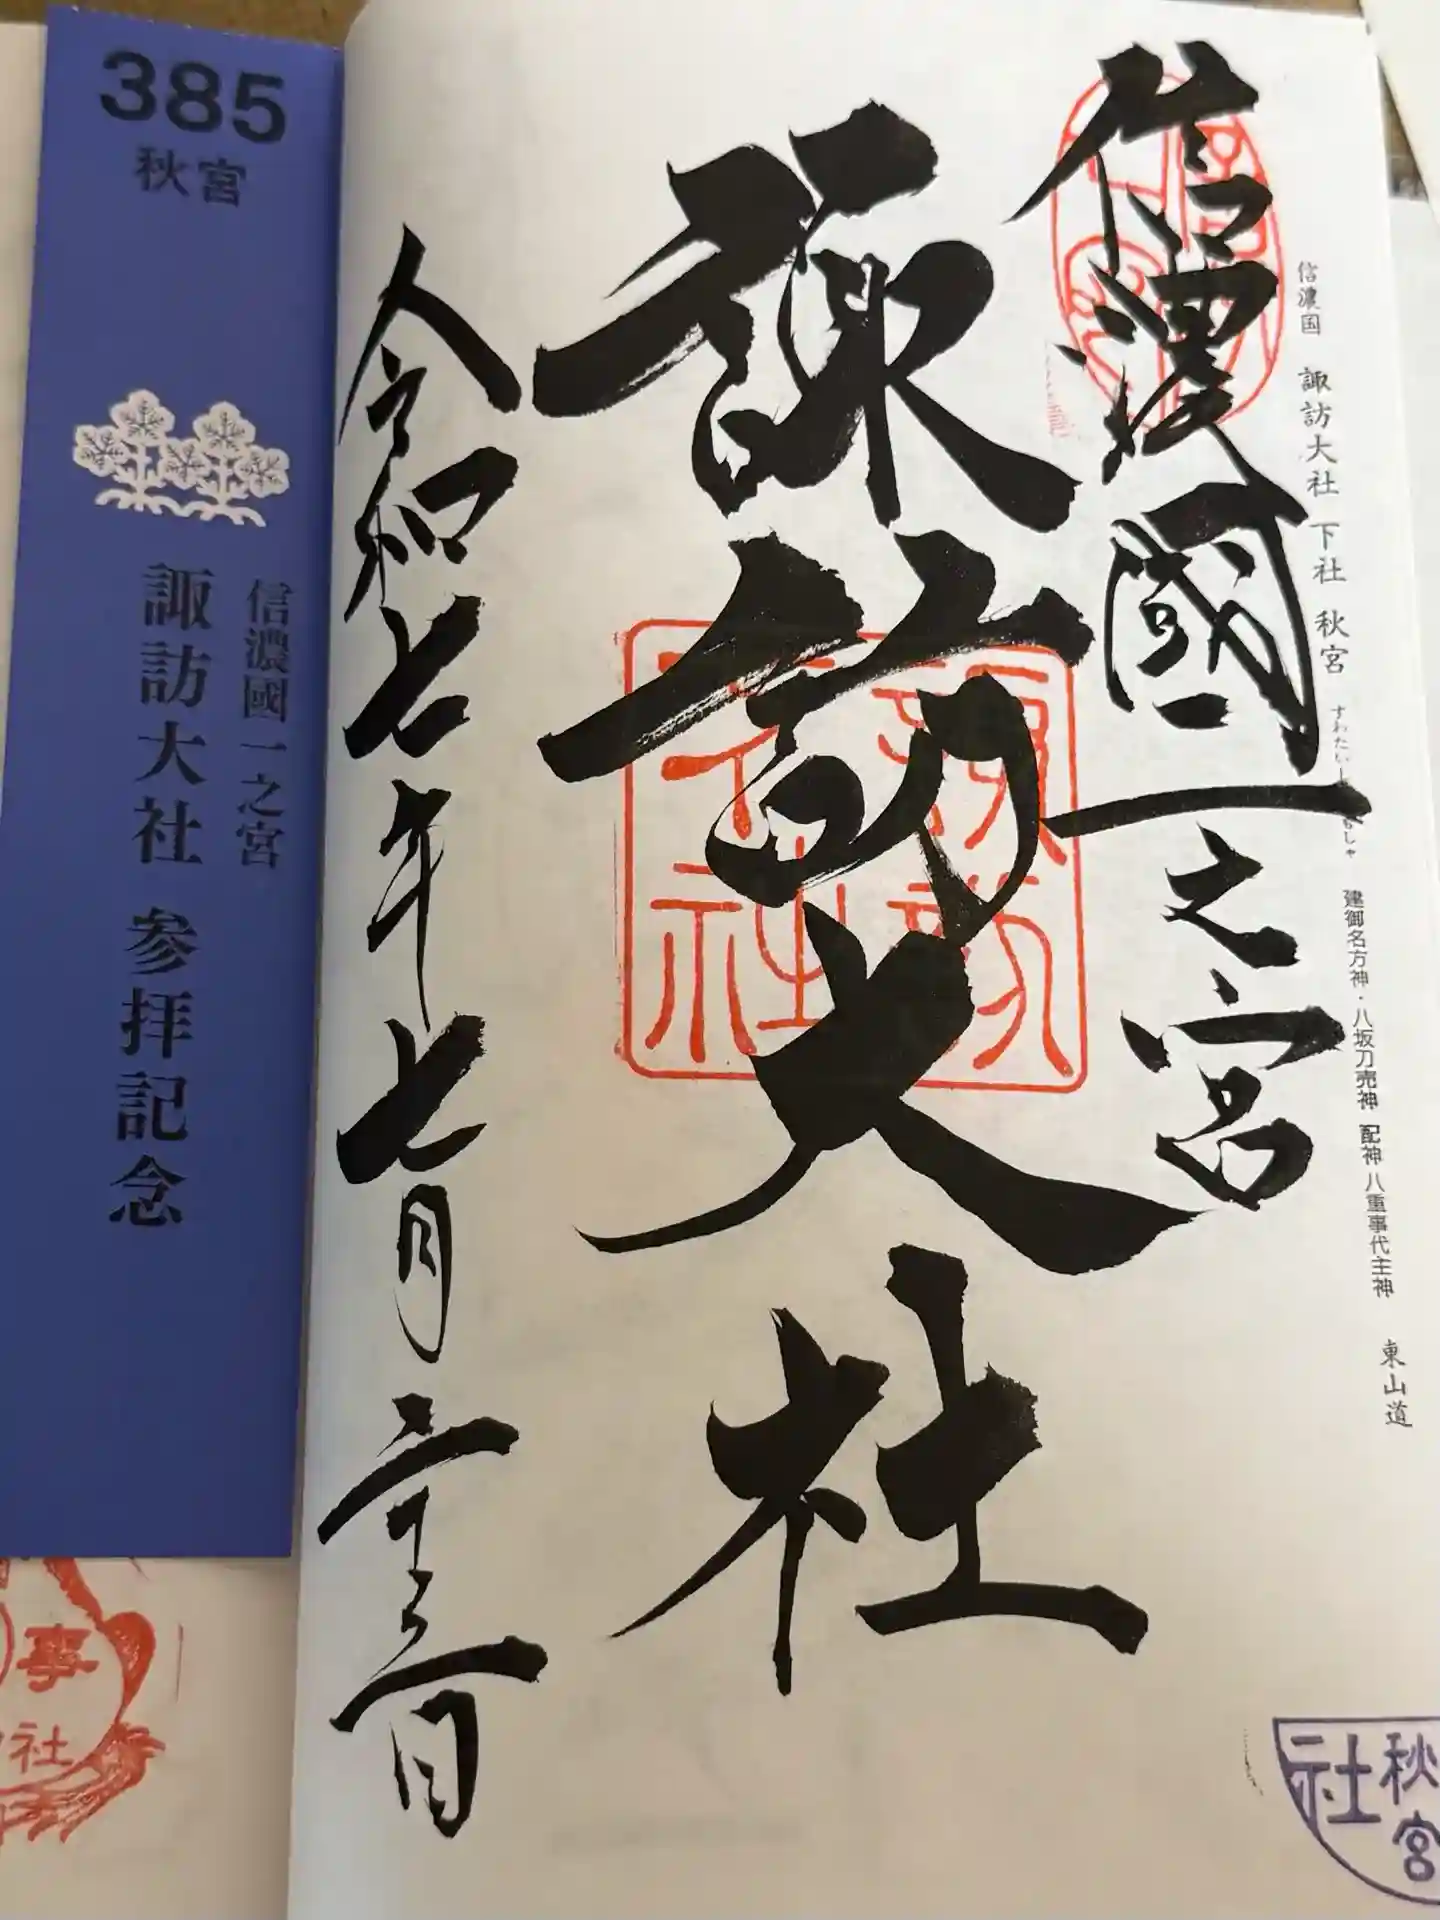 信濃国 諏訪大社 下社 秋宮
建御名方神・八坂刀売神 配神 八重事代主神 東山道
信濃國一之宮
諏訪大社
諏訪大社
令和七年七月二十三日
385
秋宮
信濃國一之宮
諏訪大社 参拝記念
秋宮
社
事
社